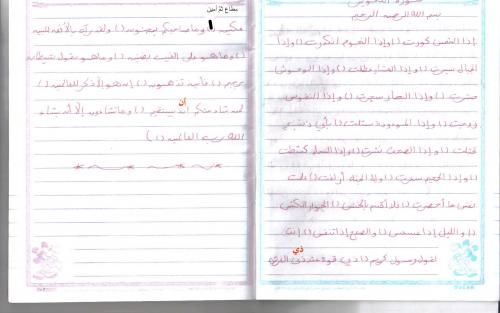 سورة
بسم الله الرحمن الرحيم
إذا الشمس كورت () وإذا النجوم انكدرت () وإذا
الجبال سيرت () وإذا العشار عطلت () وإذا الوحوش
حشرت () وإذا البحار سجرت () وإذا النفوس
زوجت () وإذا الموءودة سئلت () بأي ذنب
قتلت () وإذا الصحف نشرت () وإذا السماء كشطت
() وإذا الجحيم سعرت () وإذا الجنة أزلفت () علمت
نفس ما أحضرت () فلا أقسم بالخنس () الجوار الكنس
() والليل إذا عسعس () والصبح إذا تنفس () إنه
ذي
لقول رسول كريم () ذي قوة عند ذي العرش
مطاع ثم أمين
مكين () وما صاحبكم بمجنون () ولقد رآه بالأفق المبين
() وما هو على الغيب بضنين () وما هو بقول شيطان
رجيم () فأين تذهبون () إن هو إلا ذكر للعالمين ()
أن
لمن شاء منكم أن يستقيم () وما تشاءون إلا أن يشاء
الله رب العالمين ()